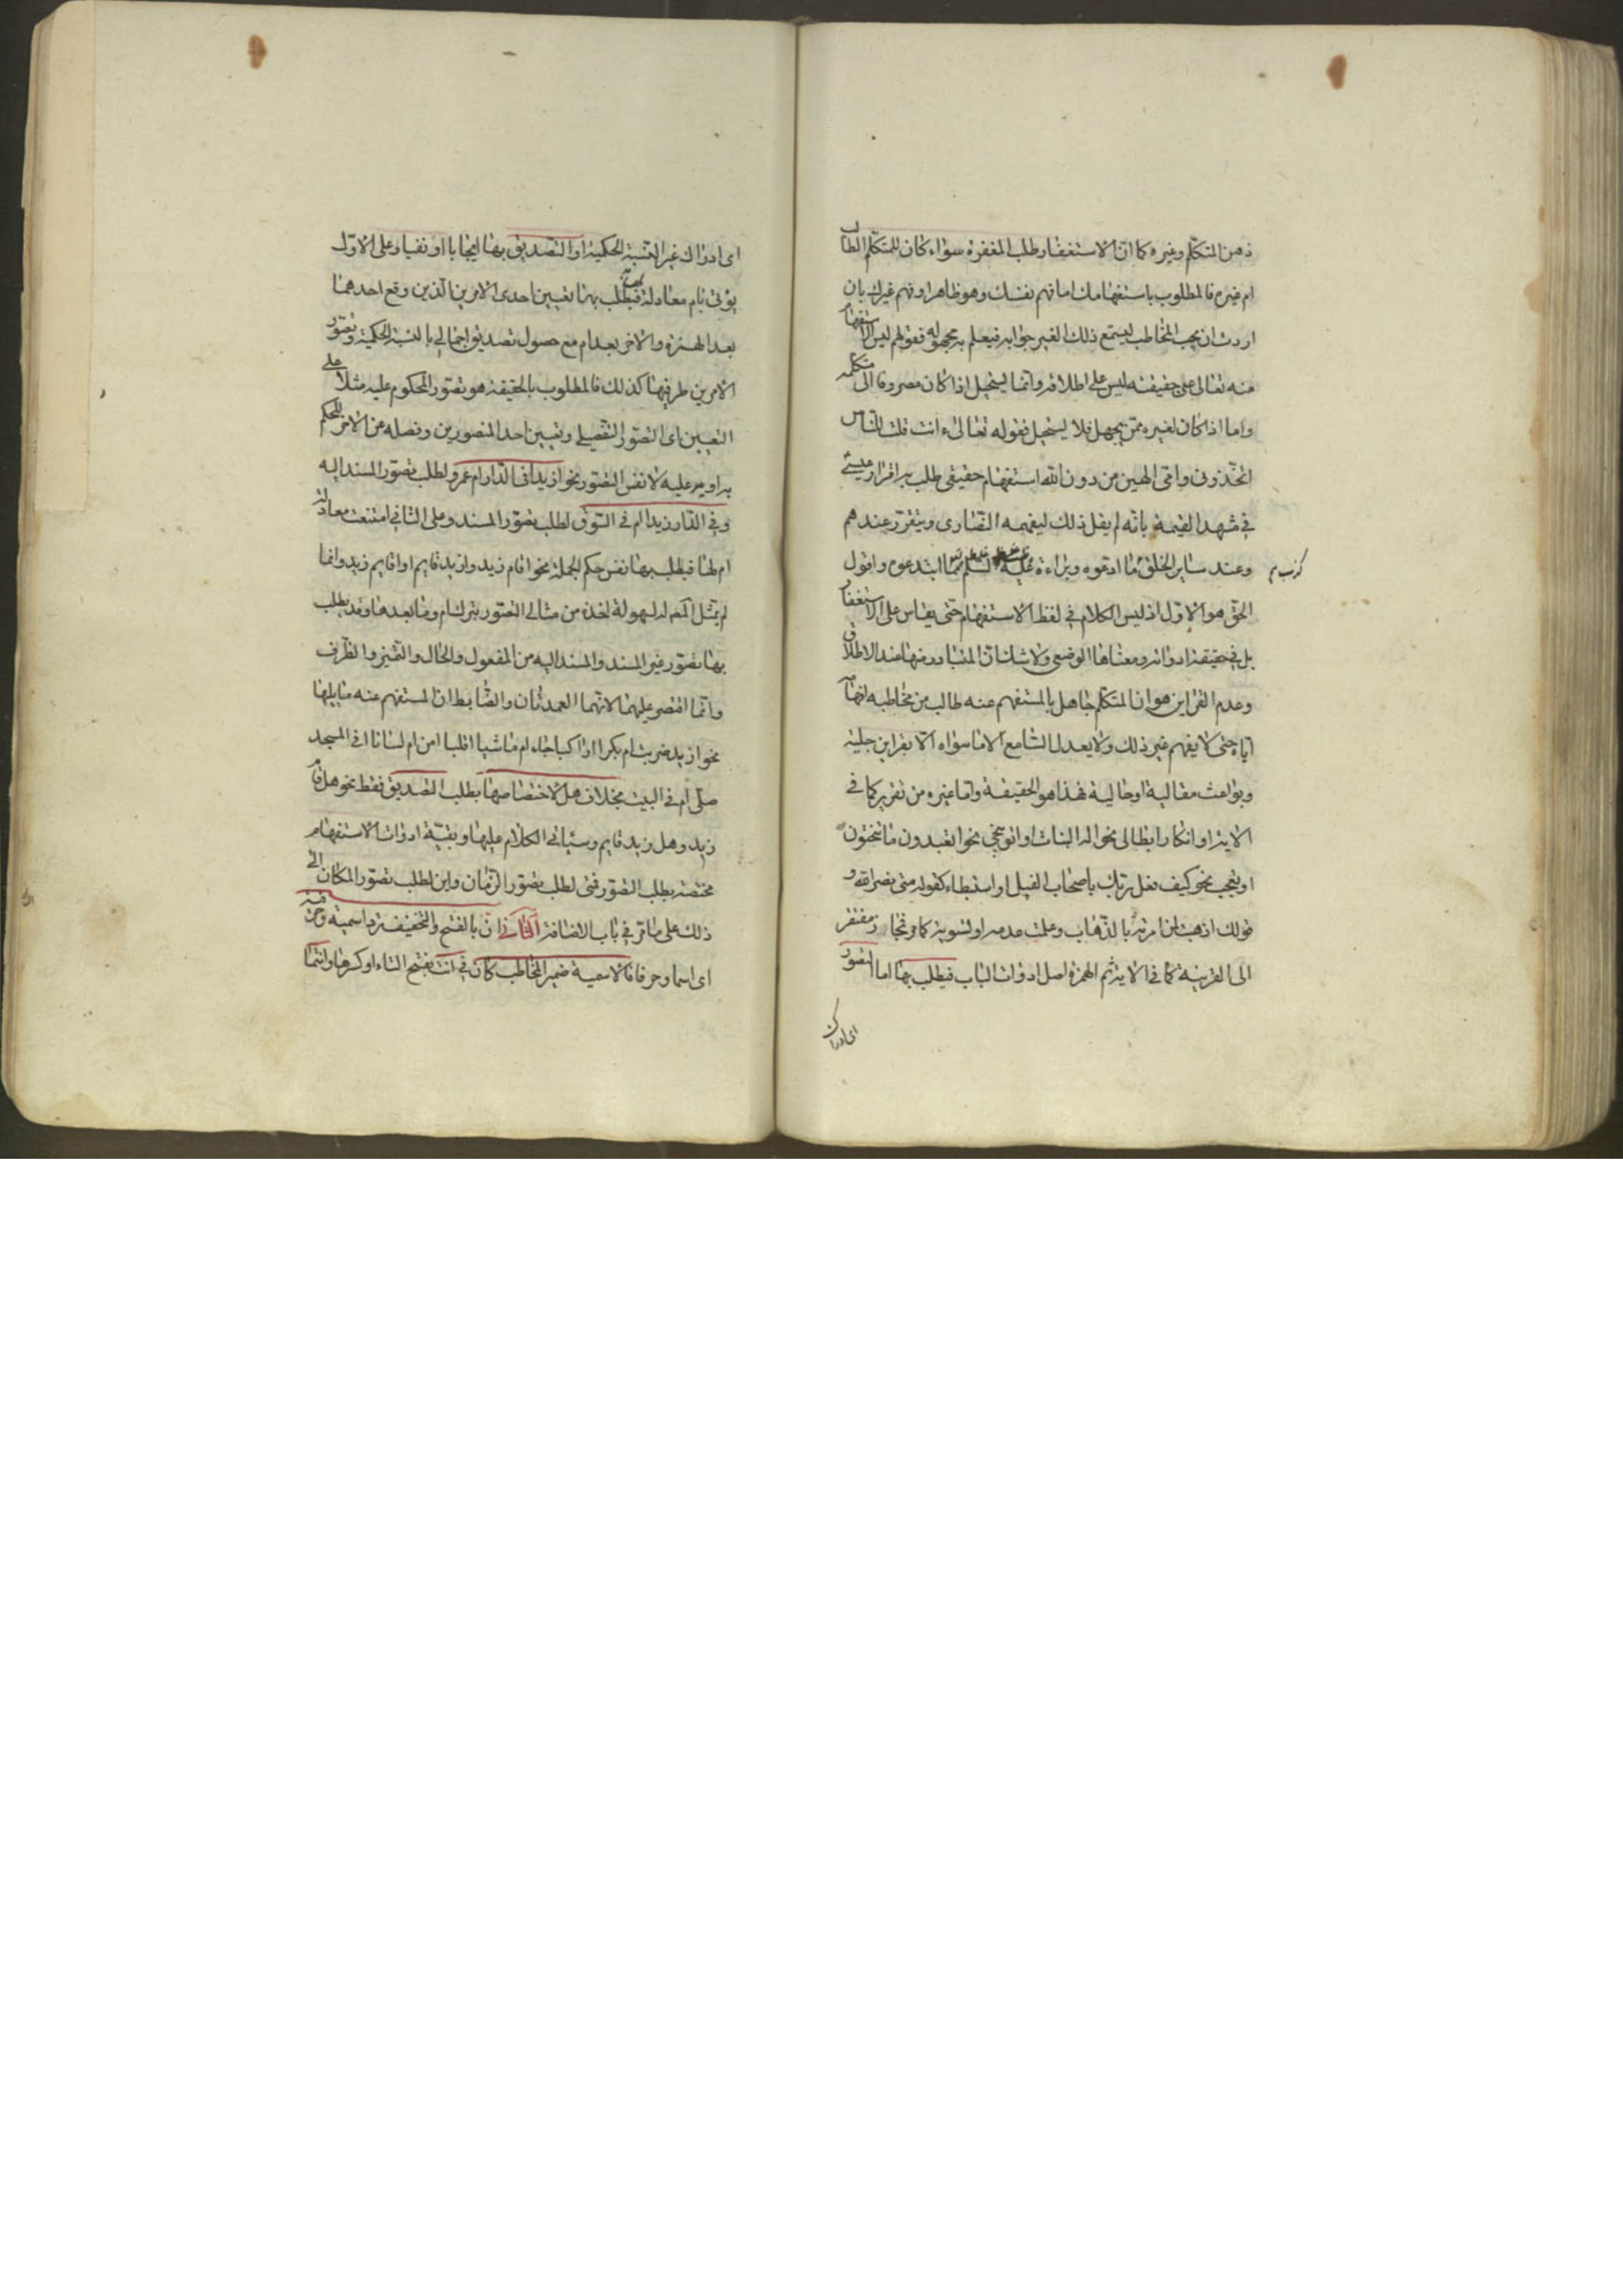 ذهن المتكلم وغيره كما ان الاستغفار طلب المغفرة سواء كان للمتكلم الطالب
ام غيره فالمطلوب باستفهامك اما فهم نفسك وهو ظاهر او فهم غيرك بان
اردت ان يجب المخاطب ليستمع ذلك الغير جوابه فيعلم به مجهوله فقولهم ليس الاستفهام
منه تعالى على حقيقته ليس على اطلاقه وانما يستحيل اذا كان مصروفا الى متكلمه
واما اذا كان لغيره ممن يجهل فلا يستحيل فقوله تعالى ءانت قلت للناس
اتخذوني وامّى الهين من دون الله استفهام حقيقي طلب به اقرار عيسى
في مشهد القيمة بانه لم يقل ذلك ليفهمه النصارى ويتقرر عندهم
وعند ساير الخلق ما ادعوه وبراءة عليه السلم مما ابتدعوه واقول
كذب م
الحق هو الاول اذ ليس الكلام في لفظ الاستفهام حتى يقاس على الاستغفار
بل في حقيقة ادواته ومعناها الوضعى ولا شك ان المتبادر منها عند الاطلاق
وعدم القراين هو ان المتكلم جاهل بالمستفهم عنه طالب من مخاطبه افهامه
اياه حتى لا يفهم غير ذلك ولا يعدل السامع الا ما سواه الا بقراين جلية
وبواعث مقالية او حالية فهذا هو الحقيقة واما غيره من تقرير كما في
الاية او انكار ابطالى نحو اله البنات او توبيخي نحو اتعبدون ما تنحتون
او تعجب نحو كيف فعل ربك باصحاب الفيل او استبطاء كقوله متى نصر الله و
قولك اذهبت لمن امرته بالذهاب وعلمت عدمه او لتسوية كما مر فمجاز مفتقر
الى القرينة كما في الاية ثم الهمزة اصل ادوات الباب فيطلب بها اما التصور
اى ادراك
اى ادراك غير النسبة الحكمية او التصديق بها ايجابا او نفيا وعلى الاول
يؤتى بام معادلة فيطلب بها تعيين احدى الامرين الذين وقع احدهما
بعد الهمزة والاخر بعد ام مع حصول تصديق اجمالى بالنسبة الحكمية وتصور
الامرين طرفيها كذلك فالمطلوب بالحقيقة هو تصور المحكوم عليه مثلا على
التعيين اى التصور التفصيلى وتعيين احد المتصورين وفصله عن الاخر للحكم
به او به عليه لا نفس التصور نحو ازيد في الدار ام عمرو لطلب تصور المسند اليه
وفي الدار زيد ام في السوق لطلب تصور المسند وعلى الثاني امتنعت معادلة
ام لها فيطلب بها نفس حكم الجملة نحو اقام زيد وازيد قايم او اقايم زيد وانما
لم يمثل المصـ له لسهولة اخذه من مثالى التصور بترك ام وما بعدها وقد يطلب
بها تصور غير المسند والمسند اليه من المفعول والحال والتميز والظرف
وانما اقتصر عليهما لانهما العمدتان والضابط ان المستفهم عنه ما يليها
نحو ازيد ضربت ام بكرا اراكبا جاء ام ماشيا اقلبا امن ام لسانا افي المسجد
صلى ام في البيت بخلاف هل لاختصاصها بطلب التصديق فقط نحو هل قام
زيد وهل زيد قايم وسياتى الكلام عليها وبقية ادوات الاستفهام
مختصة بطلب التصور فمتى لطلب تصور الزمان واين لطلب تصور المكان الى
ذلك على ما مر في باب الاضافة الثاني ان بالفتح والتخفيف ترد اسمية وحرفية
اى اسما وحرفا فالاسمية ضمير المخاطب كان في انت بفتح التاء او كسرها وانتما